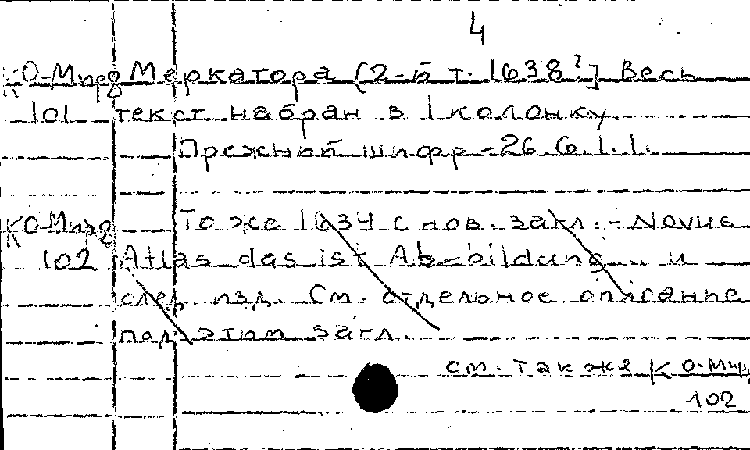 4
КО-Мирд Меркатора (2-й т. 1638?] Весь
101 текст набран в 1 колонку.
Прежний шифр - 26.6.1.1.
КО-Мирд То же 1634 с нов. загл. - Novus
102 Atlas das ist Ab-bildung ... и
след. изд. См. отдельное описание
под этим загл.
см. также КО-Мир
102